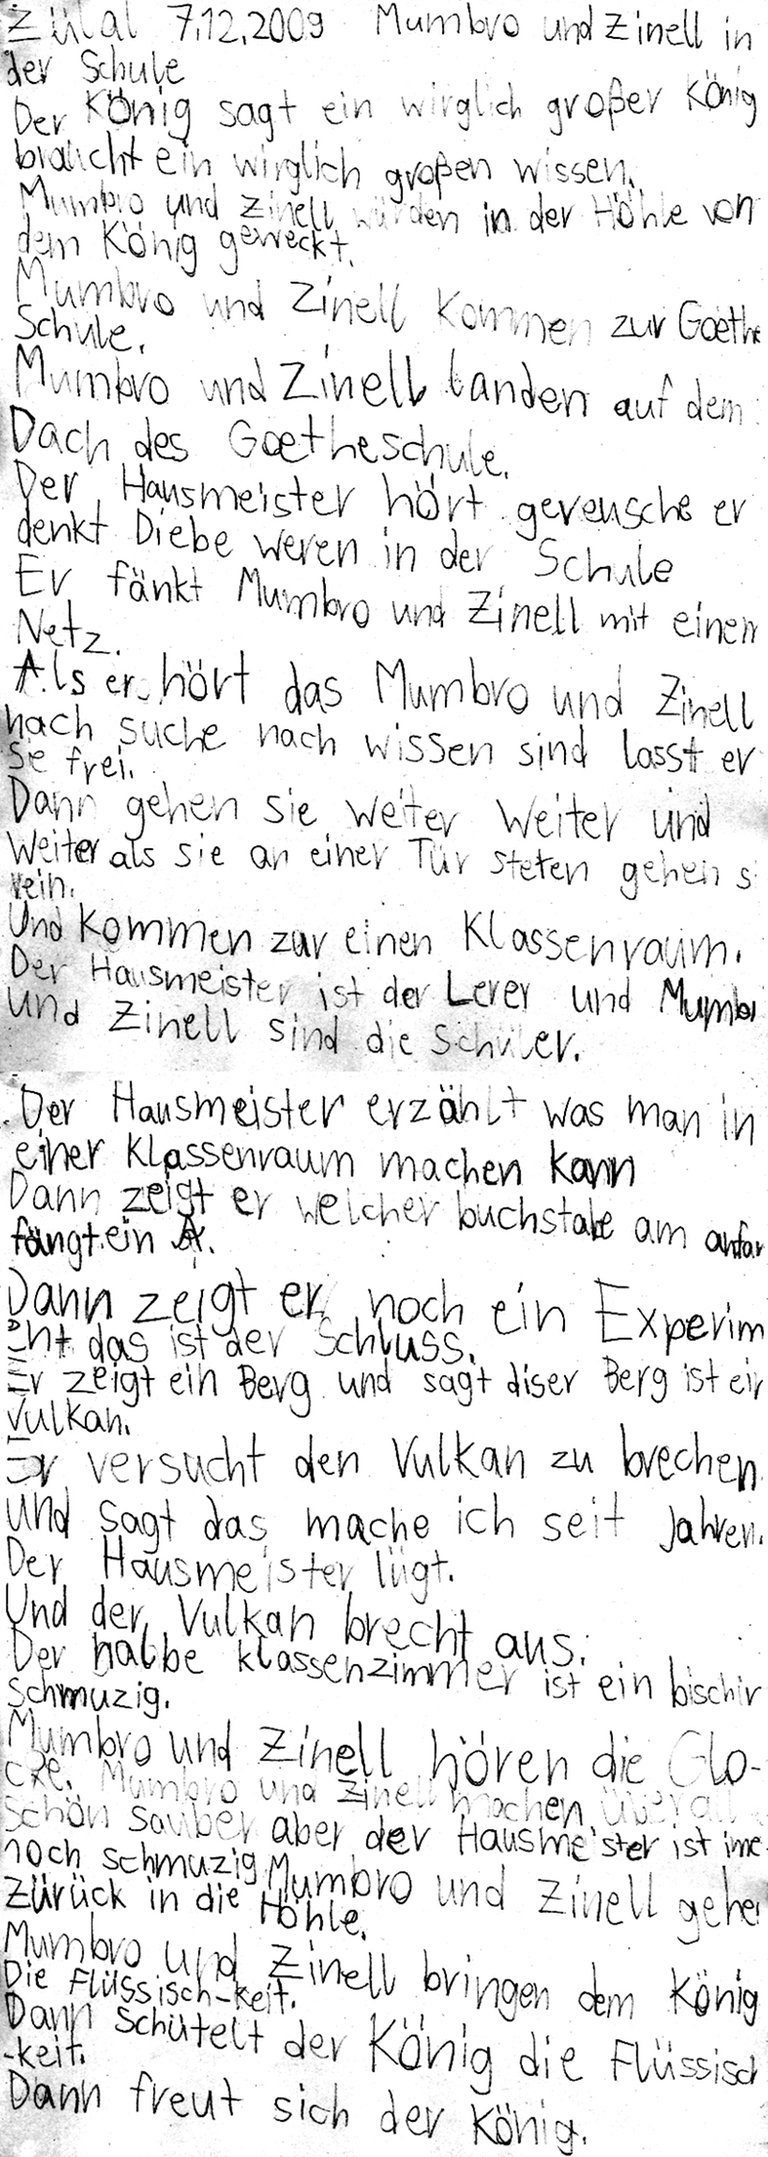 Zülal 7.12.2009 Mumbro und Zinell in
der Schule
Der König sagt ein wirglich großer König
braucht ein wirglich großen wissen.
Mumbro und Zinell würden in der Höhle von
dem König geweckt.
Mumbro und Zinell kommen zur Goethe
Schule.
Mumbro und Zinell landen auf dem
Dach des Goetheschule.
Der Hausmeister hört gereusche er
denkt Diebe weren in der Schule
Er fänkt Mumbro und Zinell mit einen
Netz.
Als er hört das Mumbro und Zinell
nach suche nach wissen sind lasst er
sie frei.
Dann gehen sie weiter weiter und
weiter als sie an einer Tür steten gehen s
rein.
Und kommen zur einen Klassenraum.
Der Hausmeister ist der Lerer und Mumbr
und Zinell sind die Schüler.
Der Hausmeister erzählt was man in
einer Klassenraum machen kann
Dann zeigt er welcher buchstabe am anfan
fängt ein A.
Dann zeigt er noch ein Experim
ent das ist der Schluss.
Er zeigt ein Berg und sagt diser Berg ist ein
Vulkan.
Er versucht den Vulkan zu brechen
und sagt das mache ich seit Jahren.
Der Hausmeister lügt.
Und der Vulkan brecht aus.
Der halbe klassenzimmer ist ein bischin
schmuzig.
Mumbro und Zinell hören die Glo-
cke. Mumbro und Zinell machen überall
schön sauber aber der Hausmeister ist ime
noch schmuzig Mumbro und Zinell gehen
zürück in die Höhle.
Mumbro und Zinell bringen dem König
Die Flüssisch-keit.
Dann schütelt der König die Flüssisch
-keit.
Dann freut sich der König.